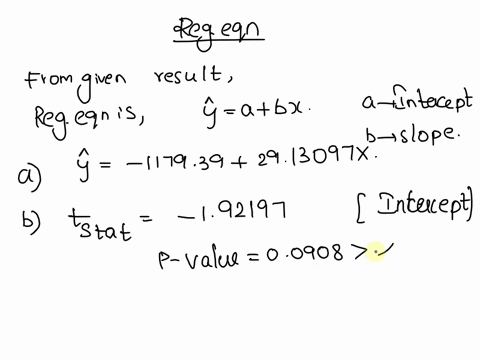 Reg eqn
From given result,
Reg. eqn is, ŷ = a + bx. a → Intercept
b → slope.
a) ŷ = -1179.39 + 29.13097X.
b) t_Stat = -1.92197 [Intercept]
P-value = 0.0908 > .